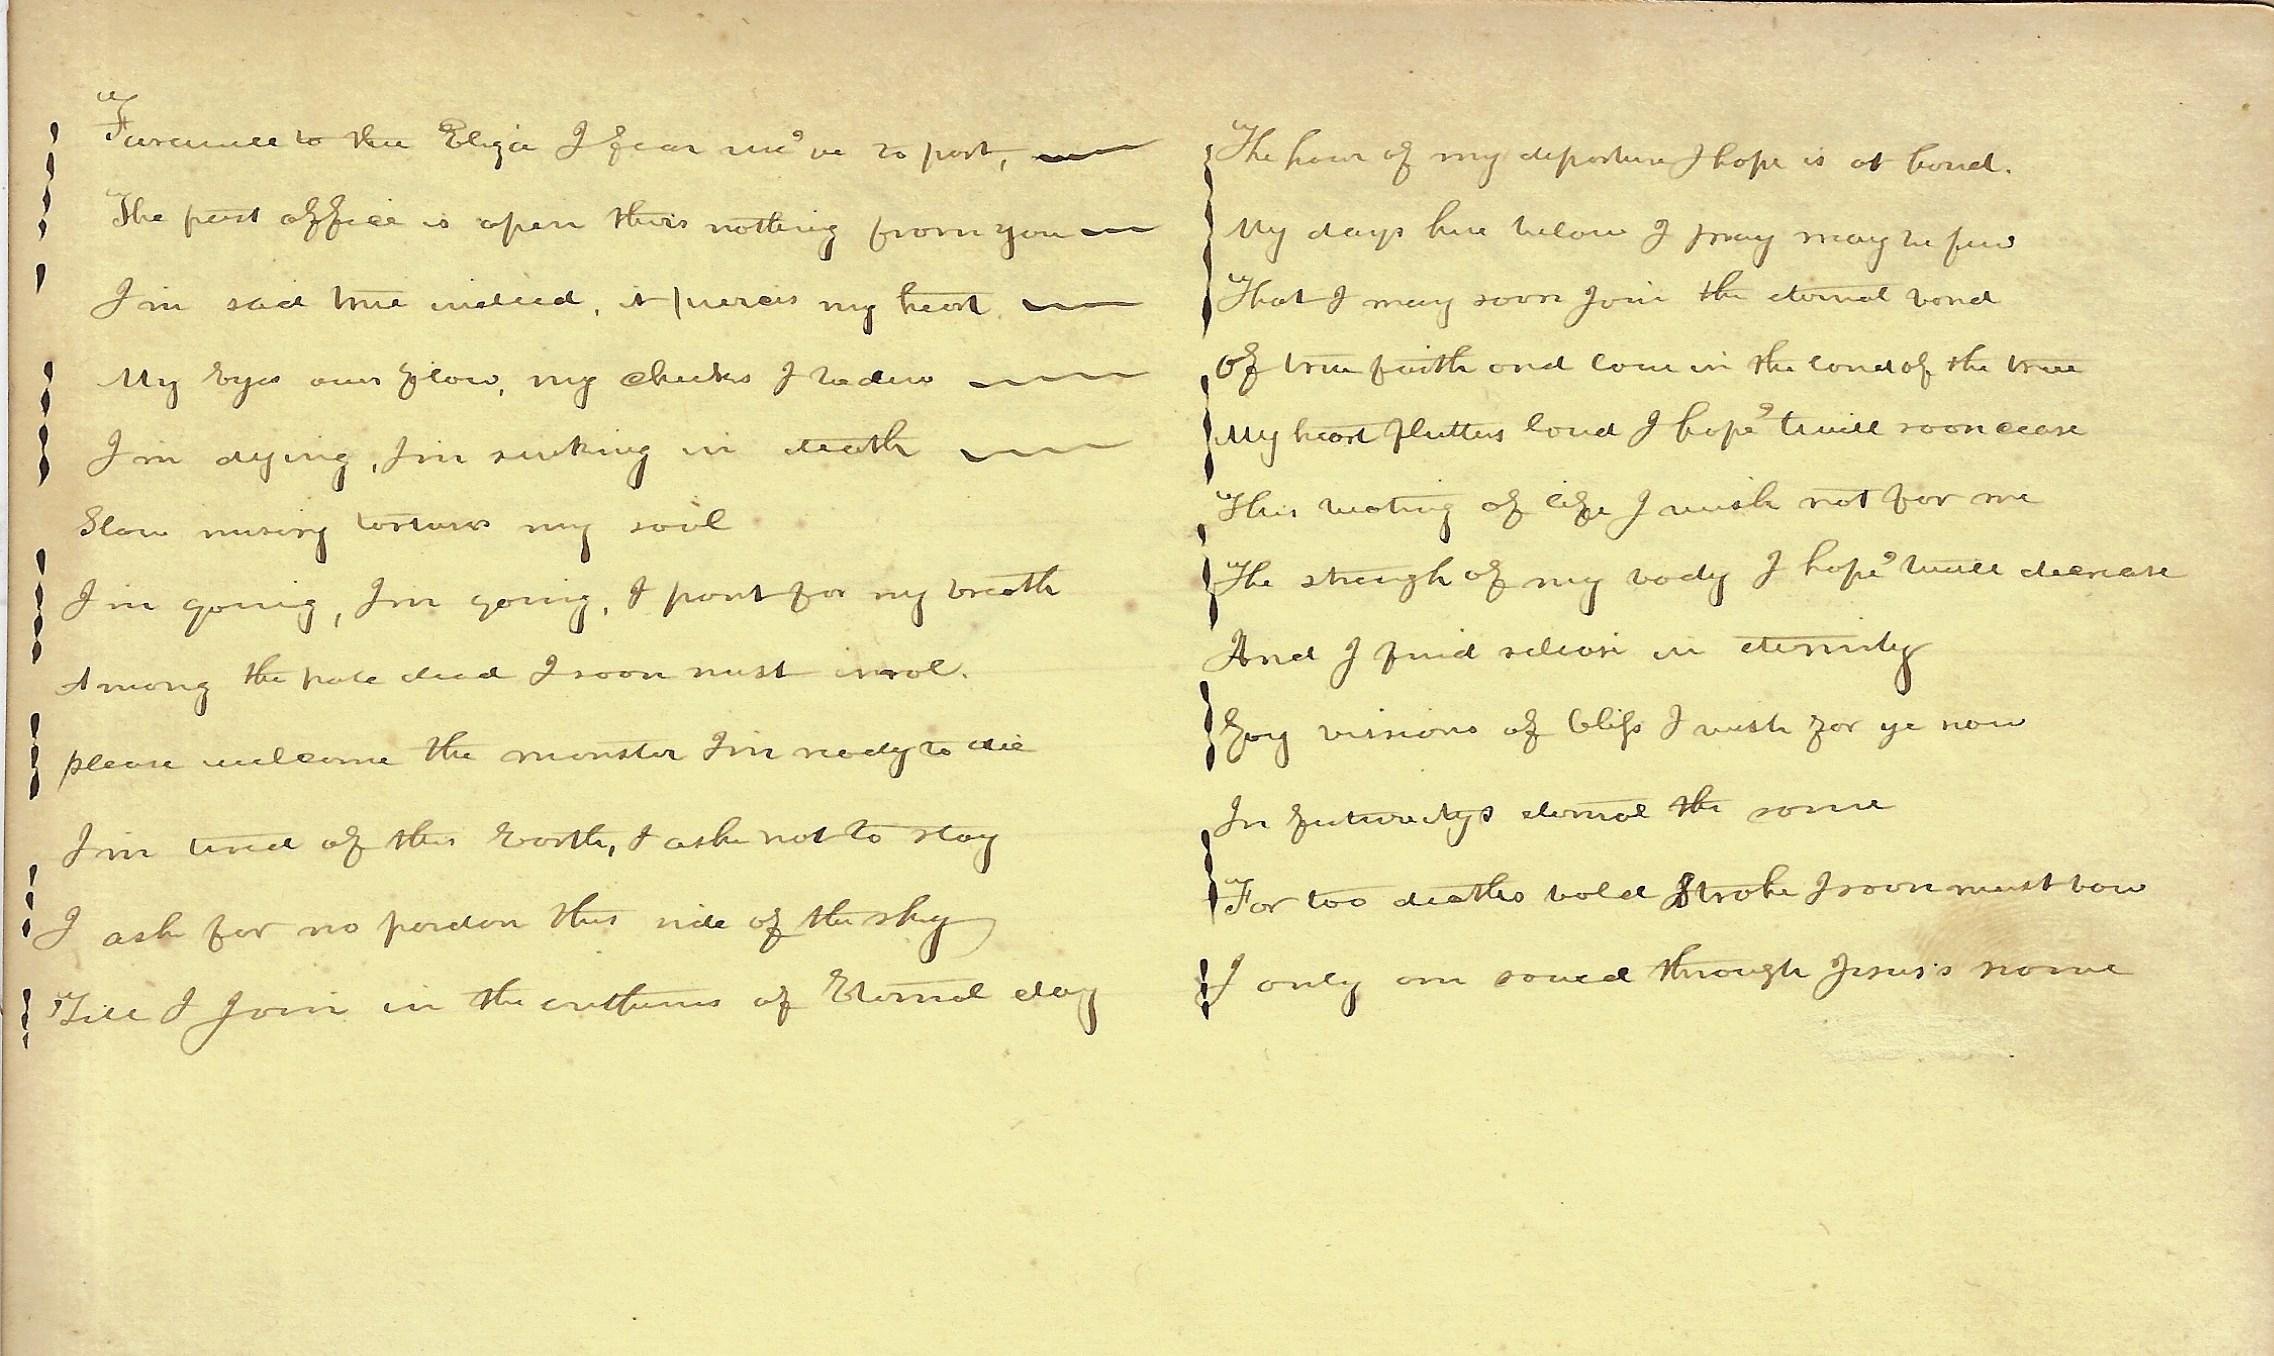 Farewell to thee Eliza I fear we've to part,
The post office is open theirs nothing from you
I'm sad true indeed, it pierces my heart
My Eyes over flow, my cheeks I bedew
I'm dying, I'm sinking in death
Slow misery tortures my soul
I'm going, I'm going, I pant for my breath
Among the pale dead I soon must enrol.
please welcome the monster I'm ready to die
I'm tired of this Earth, I ask not to stay
I ask for no pardon this side of the sky
Till I Join in the anthems of Eternal day
The hour of my departure I hope is at hand.
My days here below I pray may be few
That I may soon Join the eternal band
Of true faith and love in the land of the true
My heart flutters loud I hope 'twill soon cease
This beating of life I wish not for me
The strengh of my body I hope 'twill decrease
And I find release in eternity
Joy visions of bliss I wish for ye now
In futuritys eternal the same
For too deaths bold Stroke I soon must bow
I only am saved through Jesus's name